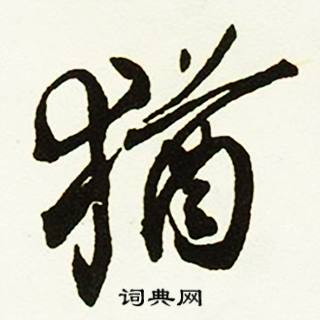 猶
词典网